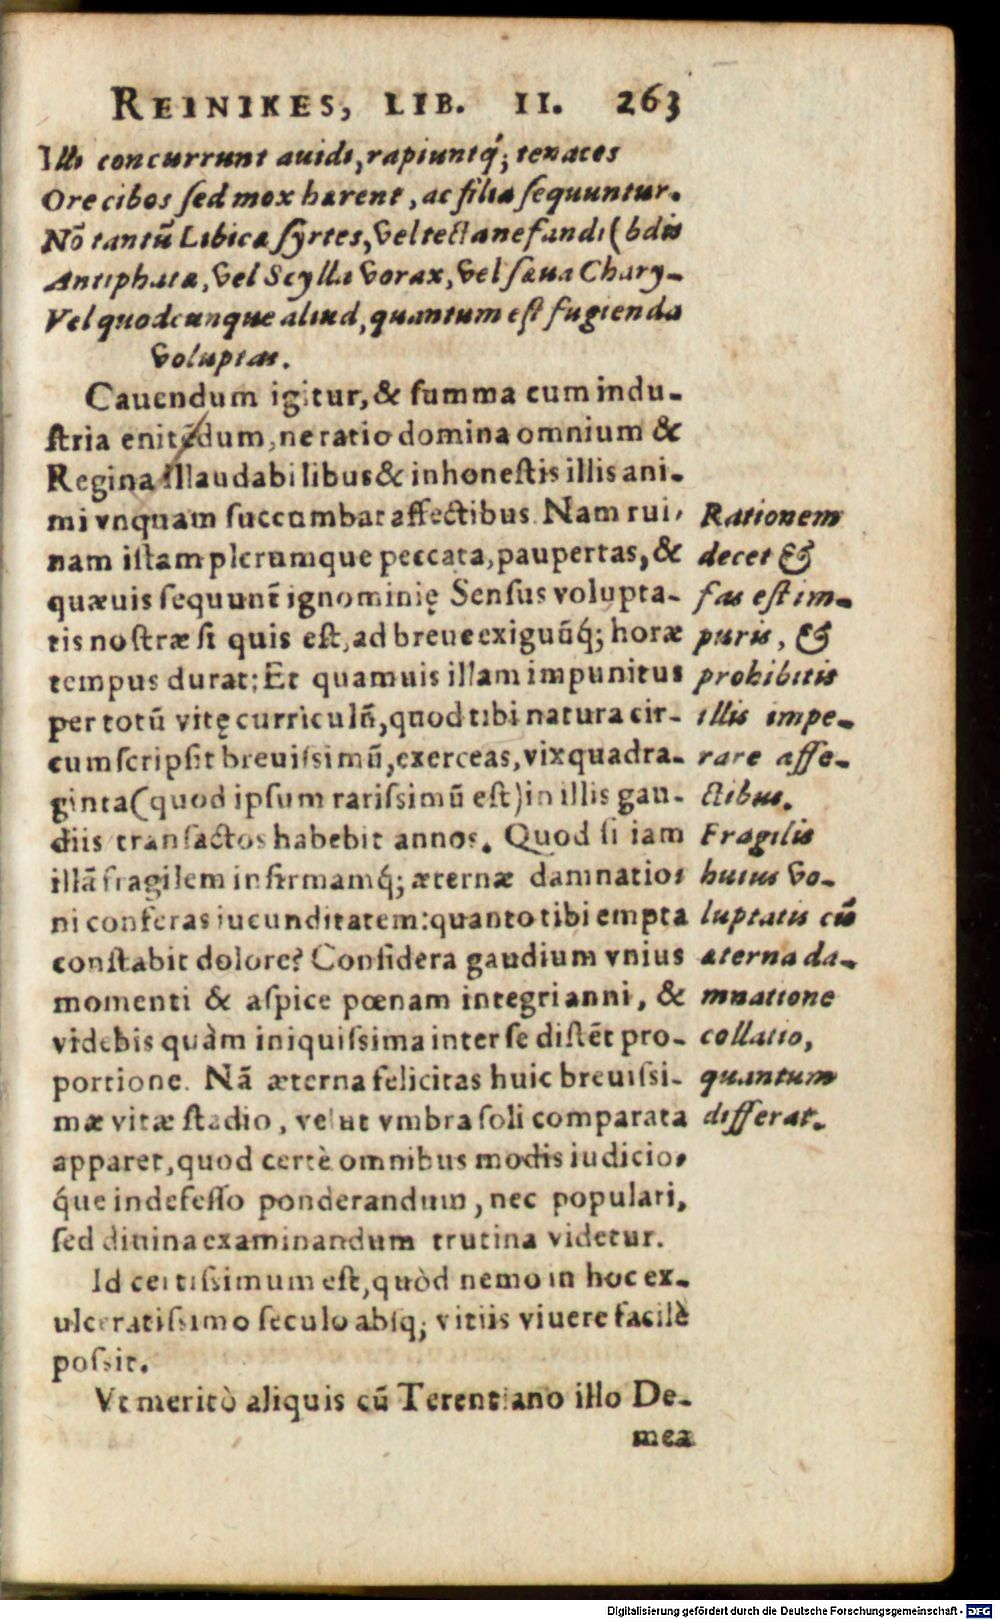 REINIKES, LIB. II. 263
Illi concurrunt auidi, rapiuntq́; tenaces
Ore cibos sed mox hærent, ac filia sequuntur.
Nō tantū Libicæ syrtes, vel tecta nefandi (bdis
Antiphatæ, vel Scylla vorax, vel sæua Chary-
Vel quodcunque aliud, quantum est fugienda
voluptas.
Cauendum igitur, & summa cum indu-
stria enitēdum, ne ratio domina omnium &
Regina illaudabilibus & inhonestis illis ani-
mi vnquam succumbat affectibus. Nam rui-
nam istam plerumque peccata, paupertas, &
quæuis sequunt̄ ignominię Sensus volupta-
tis nostræ si quis est, ad breue exiguūq́; horæ
tempus durat; Et quamuis illam impunitus
per totū vitę curriculū, quod tibi natura cir-
cumscripsit breuissimū, exerceas, vix quadra-
ginta (quod ipsum rarissimū est) in illis gau-
diis transactos habebit annos. Quod si iam
illā fragilem infirmamq́; æternæ damnatio-
ni conferas iucunditatem: quanto tibi empta
constabit dolore? Considera gaudium vnius
momenti & aspice pœnam integri anni, &
videbis quàm iniquissima inter se distēt pro-
portione. Nā æterna felicitas huic breuissi-
mæ vitæ stadio, velut vmbra soli comparata
apparet, quod certè omnibus modis iudicio-
q́ue indefesso ponderandum, nec populari,
sed diuina examinandum trutina videtur.
Id certissimum est, quòd nemo in hoc ex-
ulceratissimo seculo absq; vitiis viuere facilè
possit.
Vt meritò aliquis cū Terentiano illo De-
mea
Rationem
decet &
fas est im-
puris, &
prohibitis
illis impe-
rare affe-
ctibus.
Fragilis
huius vo-
luptatis cū
æterna da-
mnatione
collatio,
quantum
differat.
Digitalisierung gefördert durch die Deutsche Forschungsgemeinschaft - DFG